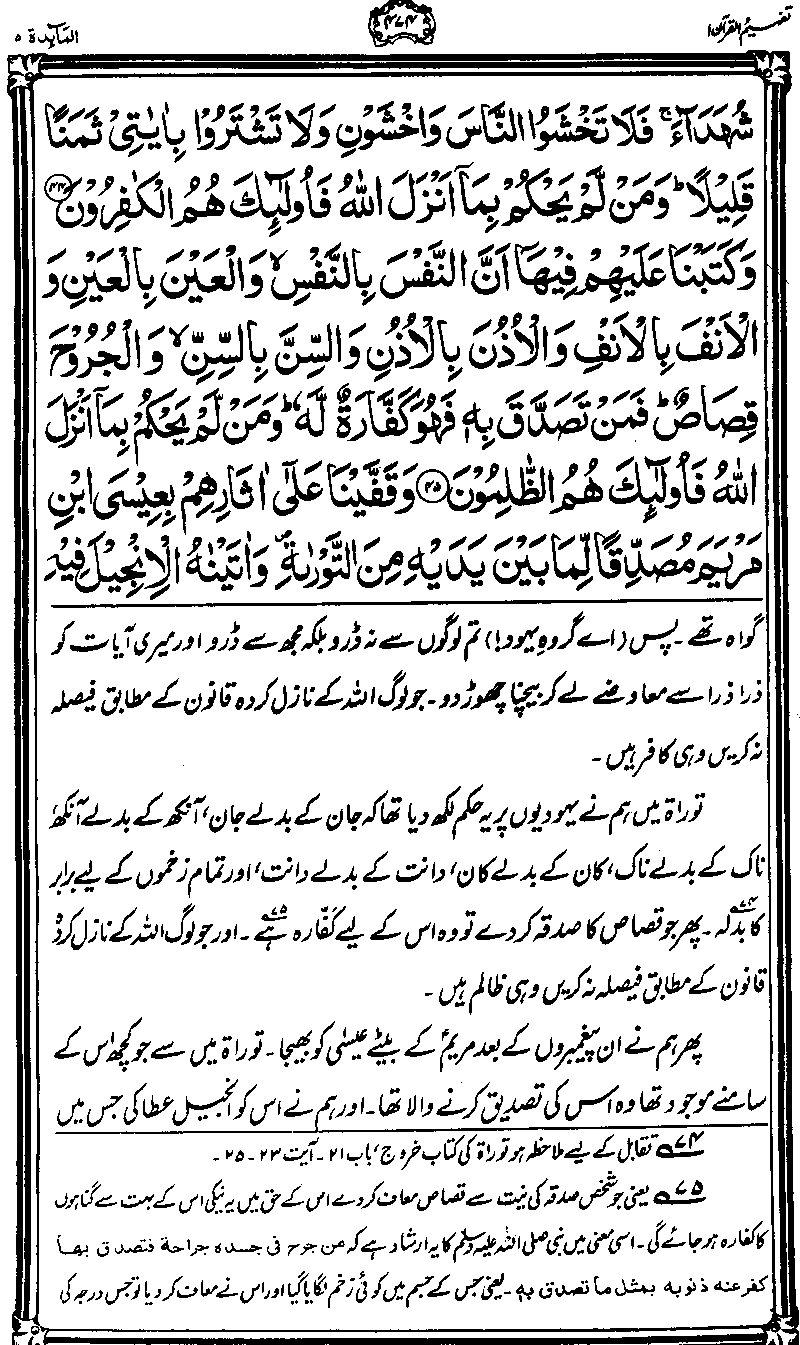 تفہیم القرآن ۱
۴۷۴
المآیدۃ ۵
شُهَدَآءَ ۚ فَلَا تَخْشَوُا النَّاسَ وَاخْشَوْنِ وَلَا تَشْتَرُوْا بِاٰيٰتِيْ ثَمَنًا
قَلِيْلًا ؕ وَمَنْ لَّمْ يَحْكُمْ بِمَآ اَنْزَلَ اللّٰهُ فَاُولٰٓئِكَ هُمُ الْكٰفِرُوْنَ ﴿۴۴﴾
وَكَتَبْنَا عَلَيْهِمْ فِيْهَآ اَنَّ النَّفْسَ بِالنَّفْسِ ۙ وَالْعَيْنَ بِالْعَيْنِ وَ
الْاَنْفَ بِالْاَنْفِ وَالْاُذُنَ بِالْاُذُنِ وَالسِّنَّ بِالسِّنِّ ۙ وَالْجُرُوْحَ
قِصَاصٌ ؕ فَمَنْ تَصَدَّقَ بِهٖ فَهُوَ كَفَّارَةٌ لَّهٗ ؕ وَمَنْ لَّمْ يَحْكُمْ بِمَآ اَنْزَلَ
اللّٰهُ فَاُولٰٓئِكَ هُمُ الظّٰلِمُوْنَ ﴿۴۵﴾ وَقَفَّيْنَا عَلٰٓى اٰثَارِهِمْ بِعِيْسَى ابْنِ
مَرْيَمَ مُصَدِّقًا لِّمَا بَيْنَ يَدَيْهِ مِنَ التَّوْرٰىةِ ۪ وَاٰتَيْنٰهُ الْاِنْجِيْلَ فِيْهِ
گواہ تھے۔ پس (اے گروہِ یہود!) تم لوگوں سے نہ ڈرو بلکہ مجھ سے ڈرو اور میری آیات کو
ذرا ذرا سے معاوضے لے کر بیچنا چھوڑ دو۔ جو لوگ اللہ کے نازل کردہ قانون کے مطابق فیصلہ
نہ کریں وہی کافر ہیں۔
توراۃ میں ہم نے یہودیوں پر یہ حکم لکھ دیا تھا کہ جان کے بدلے جان، آنکھ کے بدلے آنکھ،
ناک کے بدلے ناک، کان کے بدلے کان، دانت کے بدلے دانت، اور تمام زخموں کے لیے برابر
کا بدلہ۷۴۔ پھر جو قصاص کا صدقہ کر دے تو وہ اس کے لیے کفّارہ ہے۷۵۔ اور جو لوگ اللہ کے نازل کردہ
قانون کے مطابق فیصلہ نہ کریں وہی ظالم ہیں۔
پھر ہم نے ان پیغمبروں کے بعد مریمؑ کے بیٹے عیسٰی کو بھیجا۔ توراۃ میں سے جو کچھ اس کے
سامنے موجود تھا وہ اس کی تصدیق کرنے والا تھا۔ اور ہم نے اس کو انجیل عطا کی جس میں
۷۴ تقابل کے لیے ملاحظہ ہو توراۃ کی کتاب خروج، باب ۲۱۔ آیت ۲۳-۲۵۔
۷۵ یعنی جو شخص صدقہ کی نیت سے قصاص معاف کر دے اس کے حق میں یہ نیکی اس کے بہت سے گناہوں
کا کفارہ ہو جائے گی۔ اسی معنی میں نبی صلی اللہ علیہ وسلم کا یہ ارشاد ہے کہ من جرح فی جسدہ جراحۃ فتصدق بھا
کفر عنہ ذنوبہ بمثل ما تصدق بہ۔ یعنی جس کے جسم میں کوئی زخم لگایا گیا اور اس نے معاف کر دیا تو جس درجہ کی